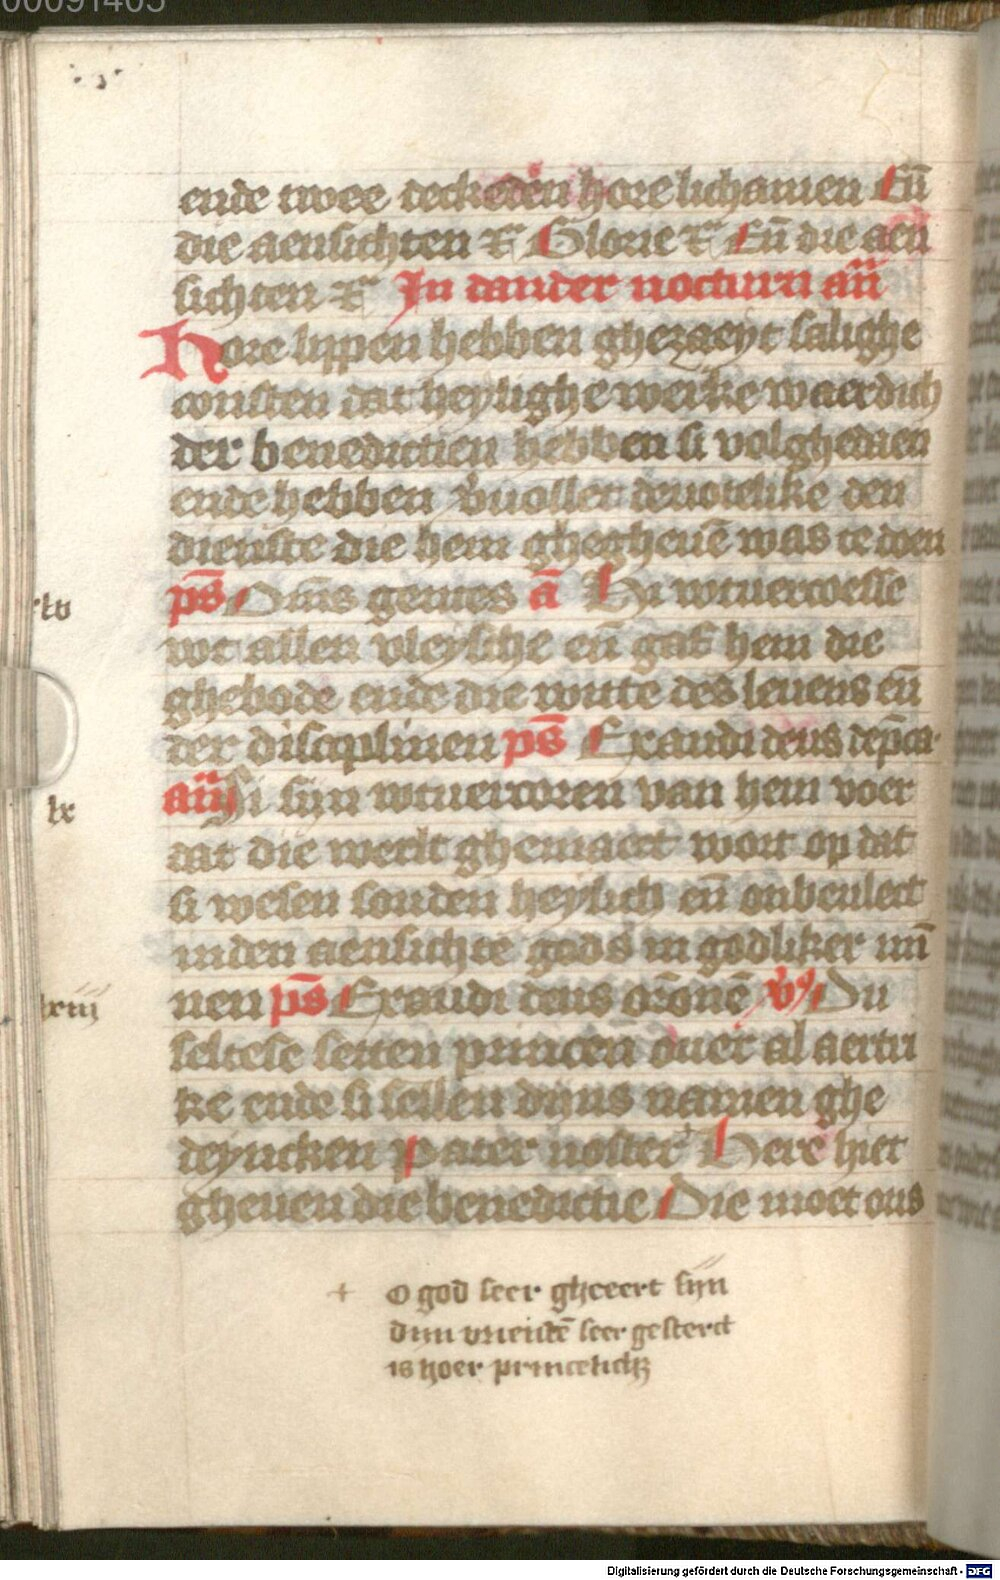 00091405
ende twee deckeden hore lichamen Eñ
die aensichten &c Glorie &c Eñ die aen
sichten &c In dander nocturn añ
Hore lippen hebben ghezaeyt salighe
consten dat heylighe werke waerdich
der benedictien hebben si volghedaen
ende hebben v̄uollet deuotelike den
dienste die hem ghegheuē was te doen
xlv
ps̄ Om̄s gentes ā Hi wtuercoesse
wt allen vleysche eñ gaf hem die
ghebode ende die witte des leuens eñ
der disciplinen ps̄ Exaudi deus dep̄ca
lx
añ Si sijn wtuercoren van hem voer
dat die werlt ghemaect wort op dat
si wesen souden heylich eñ onbeulect
inden aensichte gods in godliker min̄
lxiij
nen ps̄ Exaudi deus or̄onē v̄s Du
seltese setten princen ouer al aertri
ke ende si sellen dijns namen ghe
deyncken Pater noster + Here hiet
gheuen die benedictie Die moet ons
+ O god seer gheeert sijn
dijn vriendē seer gesterct
is hoer princelichz
Digitalisierung gefördert durch die Deutsche Forschungsgemeinschaft - DFG